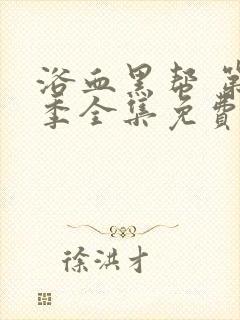 浴血黑帮 第
季全集免费
徐洪才